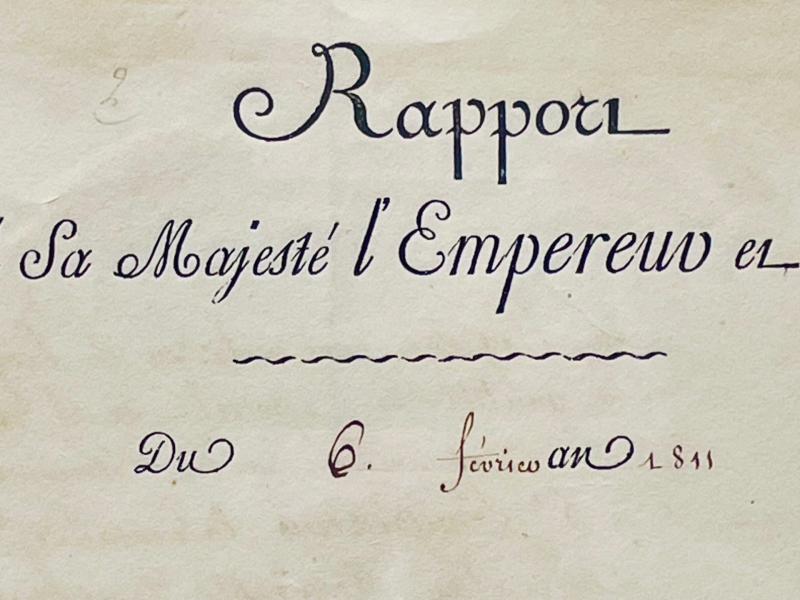 2
Rapport
Sa Majesté l'Empereur et
Du 6. février an 1811